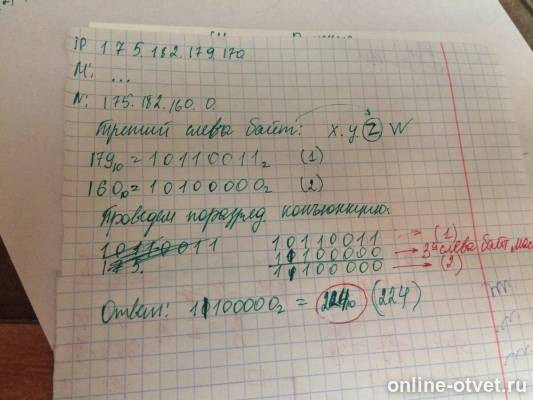 IP 175.182.179.170
М: ...
N: 175.182.160.0
Третий слева байт: X.y.Z W
179₁₀ = 10110011₂ (1)
160₁₀ = 10100000₂ (2)
Проведем поразряд конъюнкцию:
10110011
10110011 → (1)
11100000 → 3й слева байт мас
11100000 → (2)
Ответ: 11100000₂ = 224₁₀ (224)
online-otvet.ru